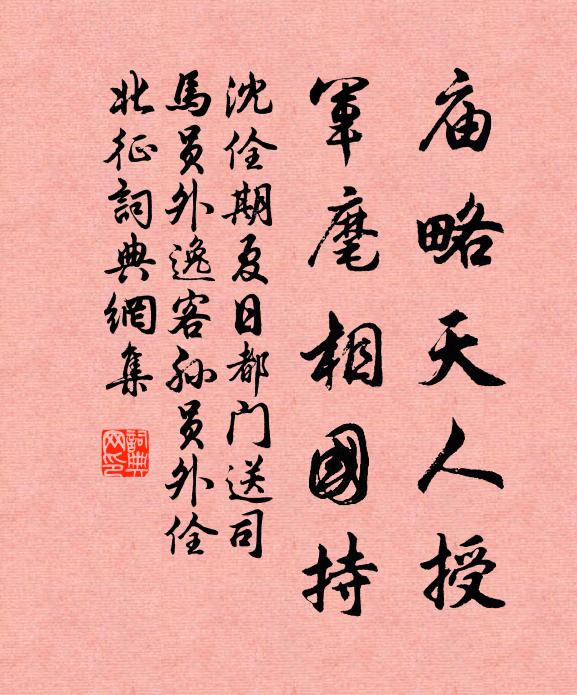 庙略天人授
军麾相國持
沈佺期夏日都门送司
馬员外逸客孙员外佺
北征詞典網集
詞典网印